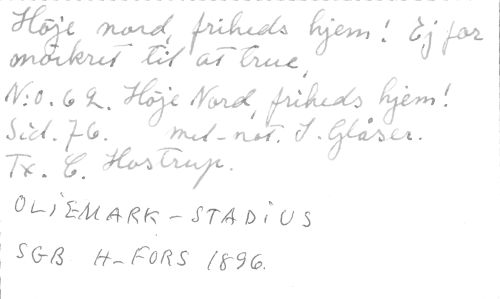 Höje nord, friheds hjem! Ej for
mörkret til at true,
N:o. 62. Höje Nord, friheds hjem!
Sid. 76. mel-not. J. Gläser.
Tx. C. Hostrup.
OLIEMARK-STADIUS
SGB H-FORS 1896.